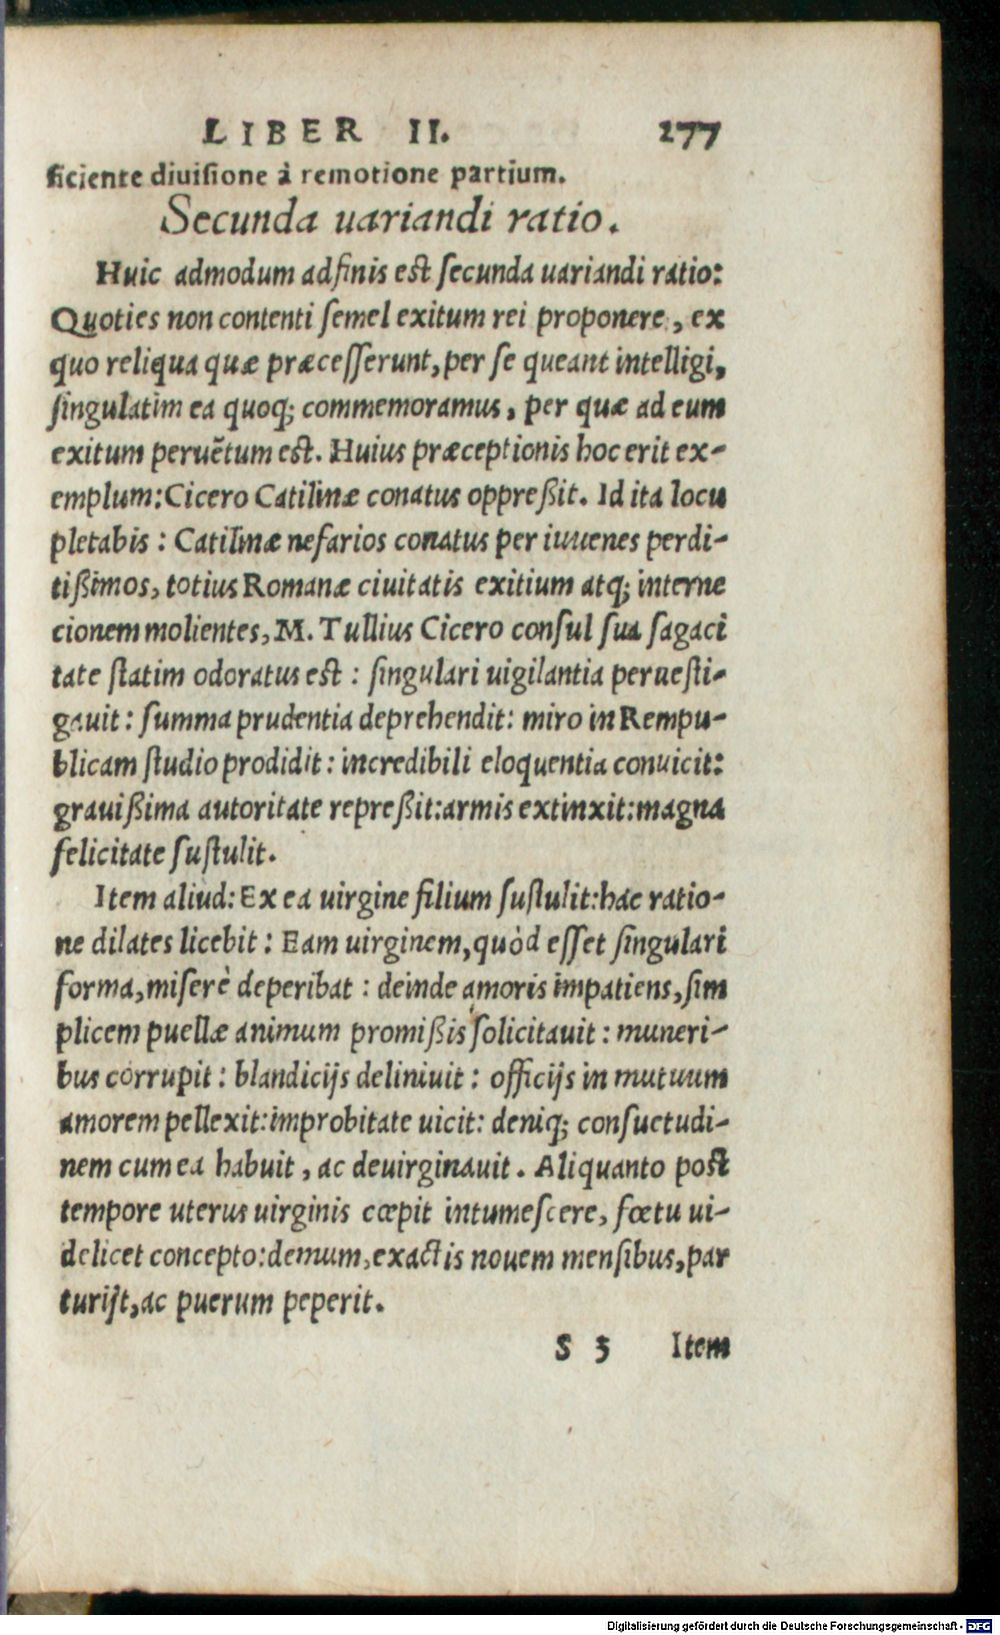 LIBER II. 277
ficiente diuisione à remotione partium.
Secunda uariandi ratio.
Huic admodum adfinis est secunda uariandi ratio:
Quoties non contenti semel exitum rei proponere, ex
quo reliqua quæ præcesserunt, per se queant intelligi,
singulatim ea quoq; commemoramus, per quæ ad eum
exitum peruẽtum est. Huius præceptionis hoc erit ex-
emplum: Cicero Catilinæ conatus oppreßit. Id ita locu
pletabis: Catilinæ nefarios conatus per iuuenes perdi-
tißimos, totius Romanæ ciuitatis exitium atq; interne
cionem molientes, M. Tullius Cicero consul sua sagaci
tate statim odoratus est: singulari uigilantia peruesti-
gauit: summa prudentia deprehendit: miro in Rempu-
blicam studio prodidit: incredibili eloquentia conuicit:
grauißima autoritate repreßit: armis extinxit: magna
felicitate sustulit.
Item aliud: Ex ea uirgine filium sustulit: hac ratio-
ne dilates licebit: Eam uirginem, quòd esset singulari
forma, miserè deperibat: deinde amoris impatiens, sim
plicem puellæ animum promißis solicitauit: muneri-
bus corrupit: blandicijs deliniuit: officijs in mutuum
amorem pellexit: improbitate uicit: deniq; consuetudi-
nem cum ea habuit, ac deuirginauit. Aliquanto post
tempore uterus uirginis cœpit intumescere, fœtu ui-
delicet concepto: demum, exactis nouem mensibus, par
turijt, ac puerum peperit.
S 3 Item
Digitalisierung gefördert durch die Deutsche Forschungsgemeinschaft - DFG